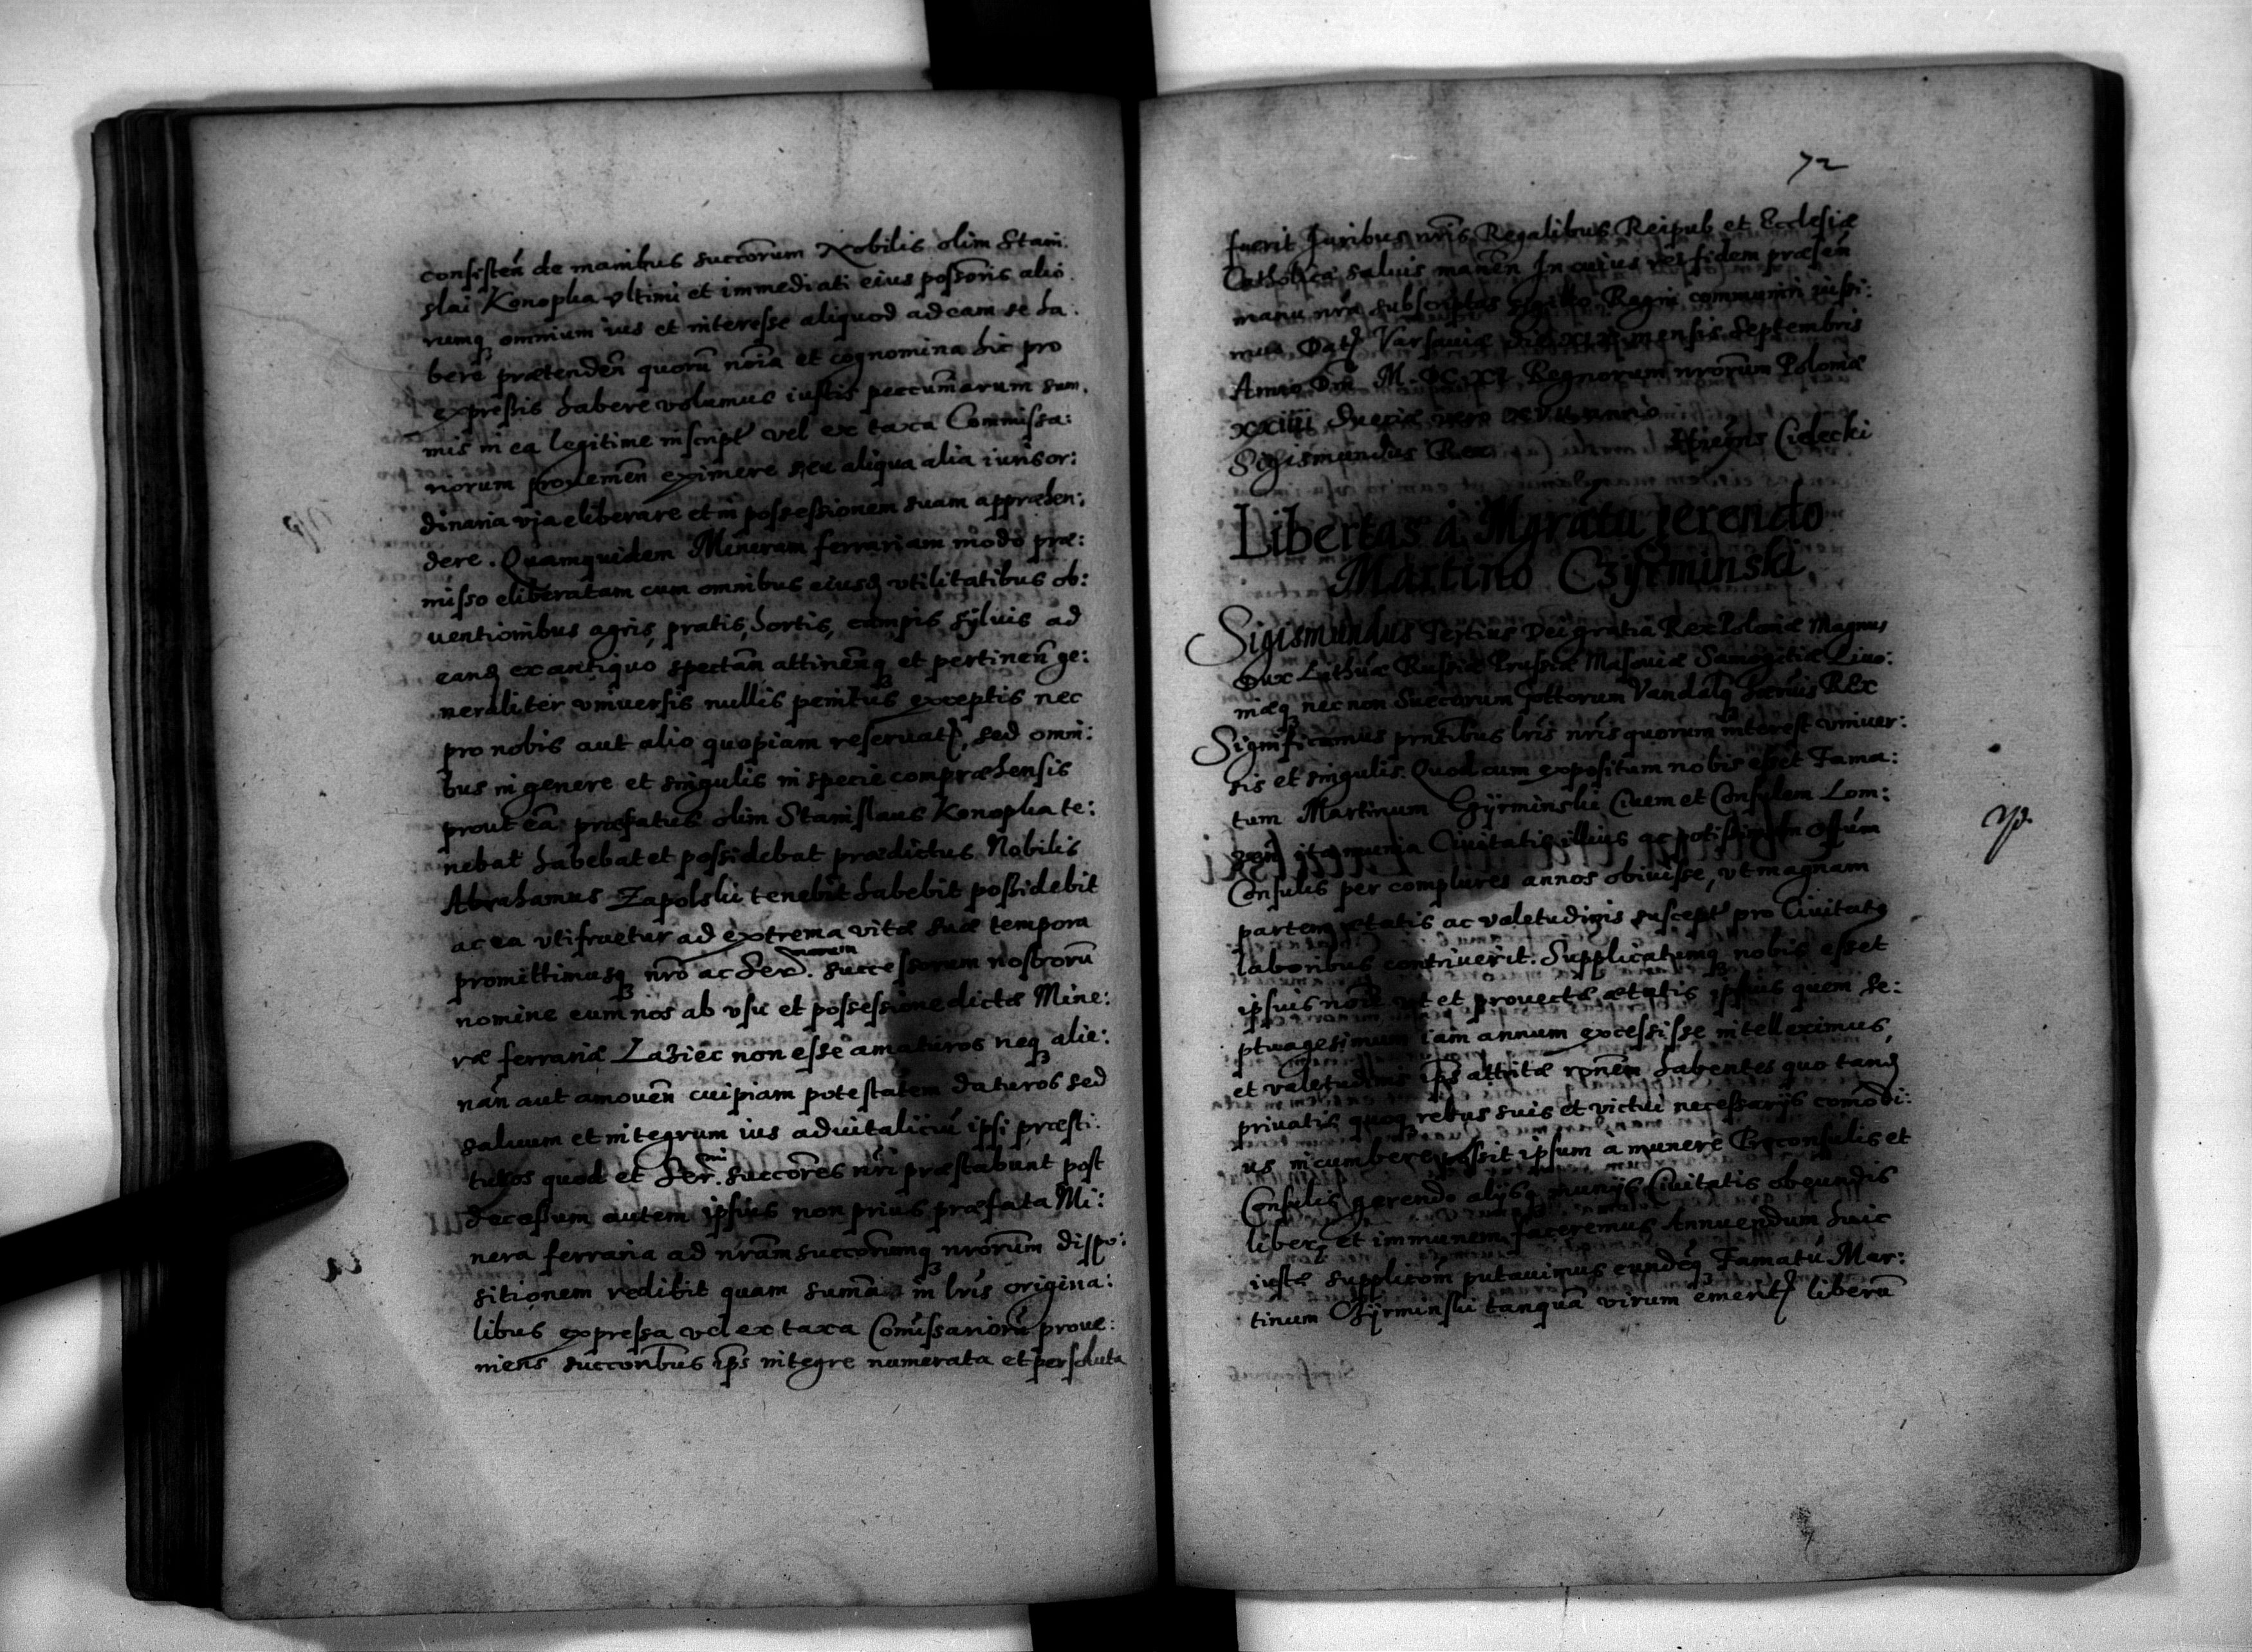 consisteñ de manibus succorum Nobilis olim Stani:
slai Konopka vltimi et immediati eius possoris alio
rumq omnium ius et interesse aliquod ad eam se ha:
bere prætendeñ quorū noīa et cognomina hic pro
expressis habere volumus iustis peccuniarum sum:
mis in ea legitime inscript vel ex taxa Commissa:
riorum proueniēn eximere seu aliqua alia iuris or:
dinaria via eliberare et in possessionem suam appræhen:
dere. Quamquidem Mineram ferrariam modo præ:
misso eliberatam cum omnibus eiusd vtilitatibus ob:
uentionibus agris, pratis, hortis, campis, syluis ad
eand ex antiquo spectañ attineñq et pertineñ ge:
neraliter vniuersis nullis penitus exceptis nec
pro nobis aut alio quopiam reseruat, sed omni:
bus in genere et singulis in specie compræhensis
prout eā præfatus olim Stanislaus Konopka te:
nebat habebat et possidebat prædictus Nobilis
Abrahamus Zapolski tenebit habebit possidebit
ac ea vtifruetur ad extrema vitæ suæ tempora
promittimusq nrō ac Ser. morum successorum nostrorū
nomine eum nos ab vsu et possessione dictæ Mine:
ræ ferrariæ Laziec non esse amoturos neq alie:
nañ aut amoueñ cuipiam potestatem daturos sed
saluum et integrum ius aduitaliciū ipsi præsti:
turos quod et Ser.mi succores nri præstabunt post
decessum autem ipsius non prius præfata Mi:
nera ferraria ad nram succorumq nrorum dispo:
sitionem redibit quam summa in lris origina:
libus expressa vel ex taxa Comissariorū proue:
niens succoribus ips integre numerata et persoluta
72
fuerit Juribus nris Regalibus Reipub et Ecclesiæ
Catholicæ saluis maneñ In cuius rei fidem præseñ
manu nra subscriptas sigillo Regni communiri iussi:
mus Dat Varsauiæ die XIX mensis Septembris
Anno Dni M. DC. XI Regnorum nrorum Poloniæ
xxiiii Sueciæ vero anno
Sigismundus Rex Cielecki
Libertas à Mgratu gerendo
Martino Czyrminski
Sigismundus Tertius Dei gratia Rex Poloniæ Magnus
Dux Lithuæ Russiæ Prussiæ Masouiæ Samogitiæ Liuo:
niæq necnon Suecorum Gottorum Vandalq hæruis REx
Significamus prntibus lris nris quorum interest vniuer:
sis et singulis. Quod cum expositum nobis esset Fama:
tum Martinum Czyrminski Ciuem et Consulem Lom:
ita munia Ciuitatis illius ac potissimum
Consulis per complures annos obiuisse, vt magnam
partem ætatis ac valetudinis suscept pro Ciuitatis
laboribus contriuerit. Supplicatumq nobis esset
ipsius noīe vt et prouectæ ætatis ipsius quem se:
ptuagesimum iam annum excessisse intelleximus,
et valetudinis ips attritæ rōnem habentes quo tand
priuatis quoq rebus suis et victui necessarijs comodi:
us incumbere possit ipsum a munere Proconsulis et
Consulis gerendo alijsq munijs Ciuitatis obeundis
liberū et immunem faceremus Annuendum huic
iustæ supplicōni putauimus eundēq Famatū Mar:
tinum Czyrminski tanquā virum emerit liberū